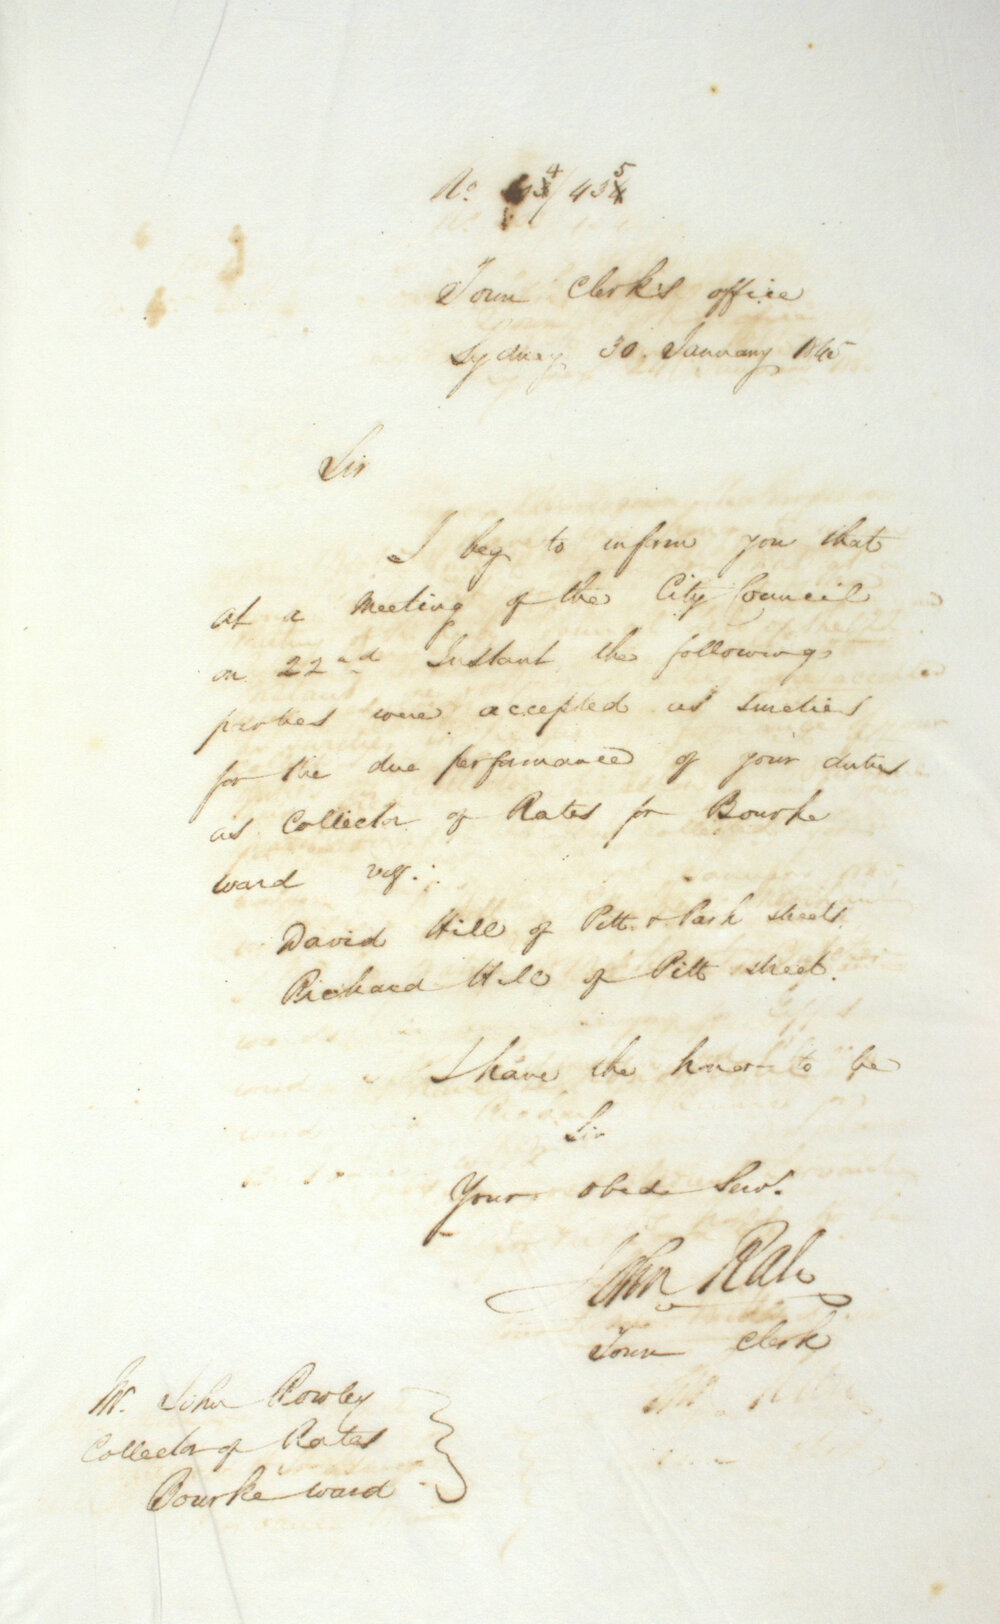 No. 4/435
Town Clerk's office
Sydney 30 January 1845
Sir
I beg to inform you that
at a Meeting of the City Council
on 22nd Instant the following
parties were accepted as sureties
for the due performance of your duties
as Collector of Rates for Bourke
ward viz.:
David Hill of Pitt & Park streets.
Richard Hill of Pitt street.
I have the honor to be
Sir
Your obed Serv.
John Rae
Town Clerk
Mr. John Rowley
Collector of Rates
Bourke ward